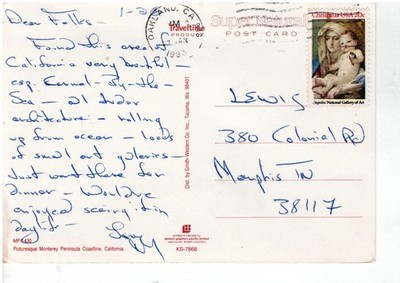 1-20
Dear Folks -
Found this area of
California very beautiful
esp. Carmel-By-the-
Sea - all tudor
architecture - rolling
up from ocean - loads
of small art galeries -
Just went there for
dinner - Would've
enjoyed seeing it in
daylite -
MP-1430
Picturesque Monterey Peninsula Coastline, California
OAKLAND, CA
JAN
Traveltime
PRODUCT
Dist. by Smith-Western Co. Inc., Tacoma, Wa. 98401
KS-7868
Super Natural
POST CARD
Christmas USA 20c
Tiepolo: National Gallery of Art
LEWIS
380 Colonial Rd
Memphis TN
38117